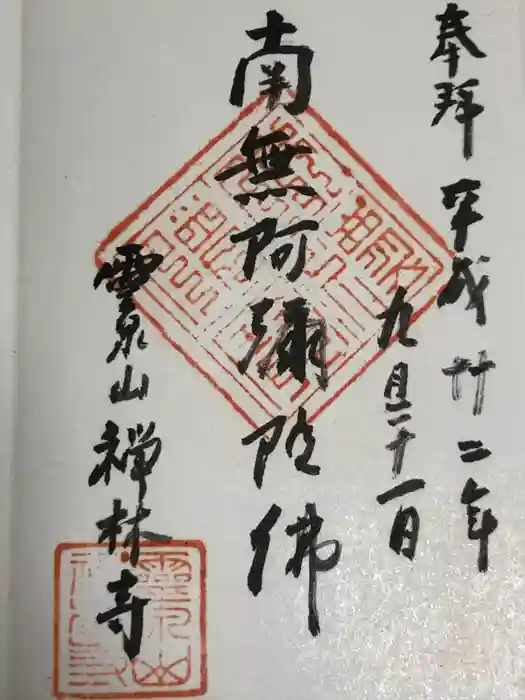 奉拝 平成廿二年
九月二十一日
南無阿彌陀佛
霊泉山禅林寺